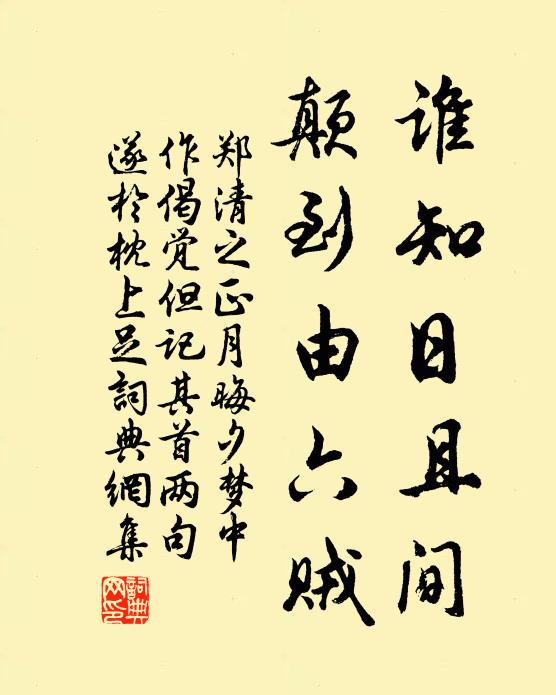 谁知日且间
颠到由六贼
郑清之正月晦夕梦中
作偈觉但记其首两句
遂於枕上足詞典網集
詞典网印